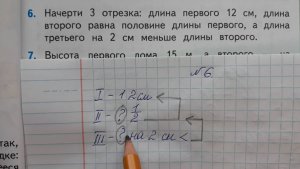 6. Начерти 3 отрезка: длина первого 12 см, длина
второго равна половине длины первого, а длина
третьего на 2 см меньше длины второго.
7. Высота первого дома 15 м, а второго
№6
I - 12 см
II - ? 1/2
III - ? на 2 см <
так,
дке: